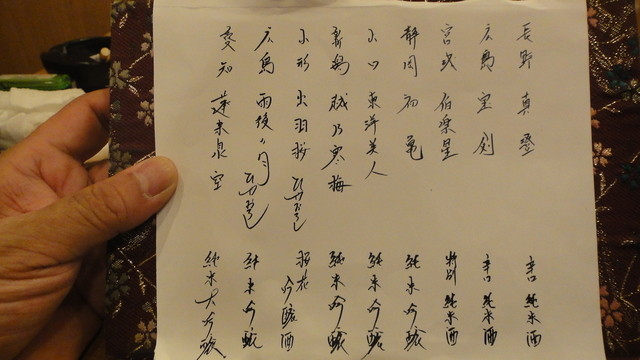 長野 真澄 辛口 純米酒
広島 宝剣 辛口 純米酒
宮城 伯楽星 特別 純米酒
静岡 初亀 純米吟醸
山口 東洋美人 純米吟醸
新潟 越乃寒梅 純米吟醸
山形 出羽桜 ひやおろし 桜花 吟醸酒
広島 雨後の月 ひやおろし 純米吟醸
愛知 蓬来泉 空 純米大吟醸